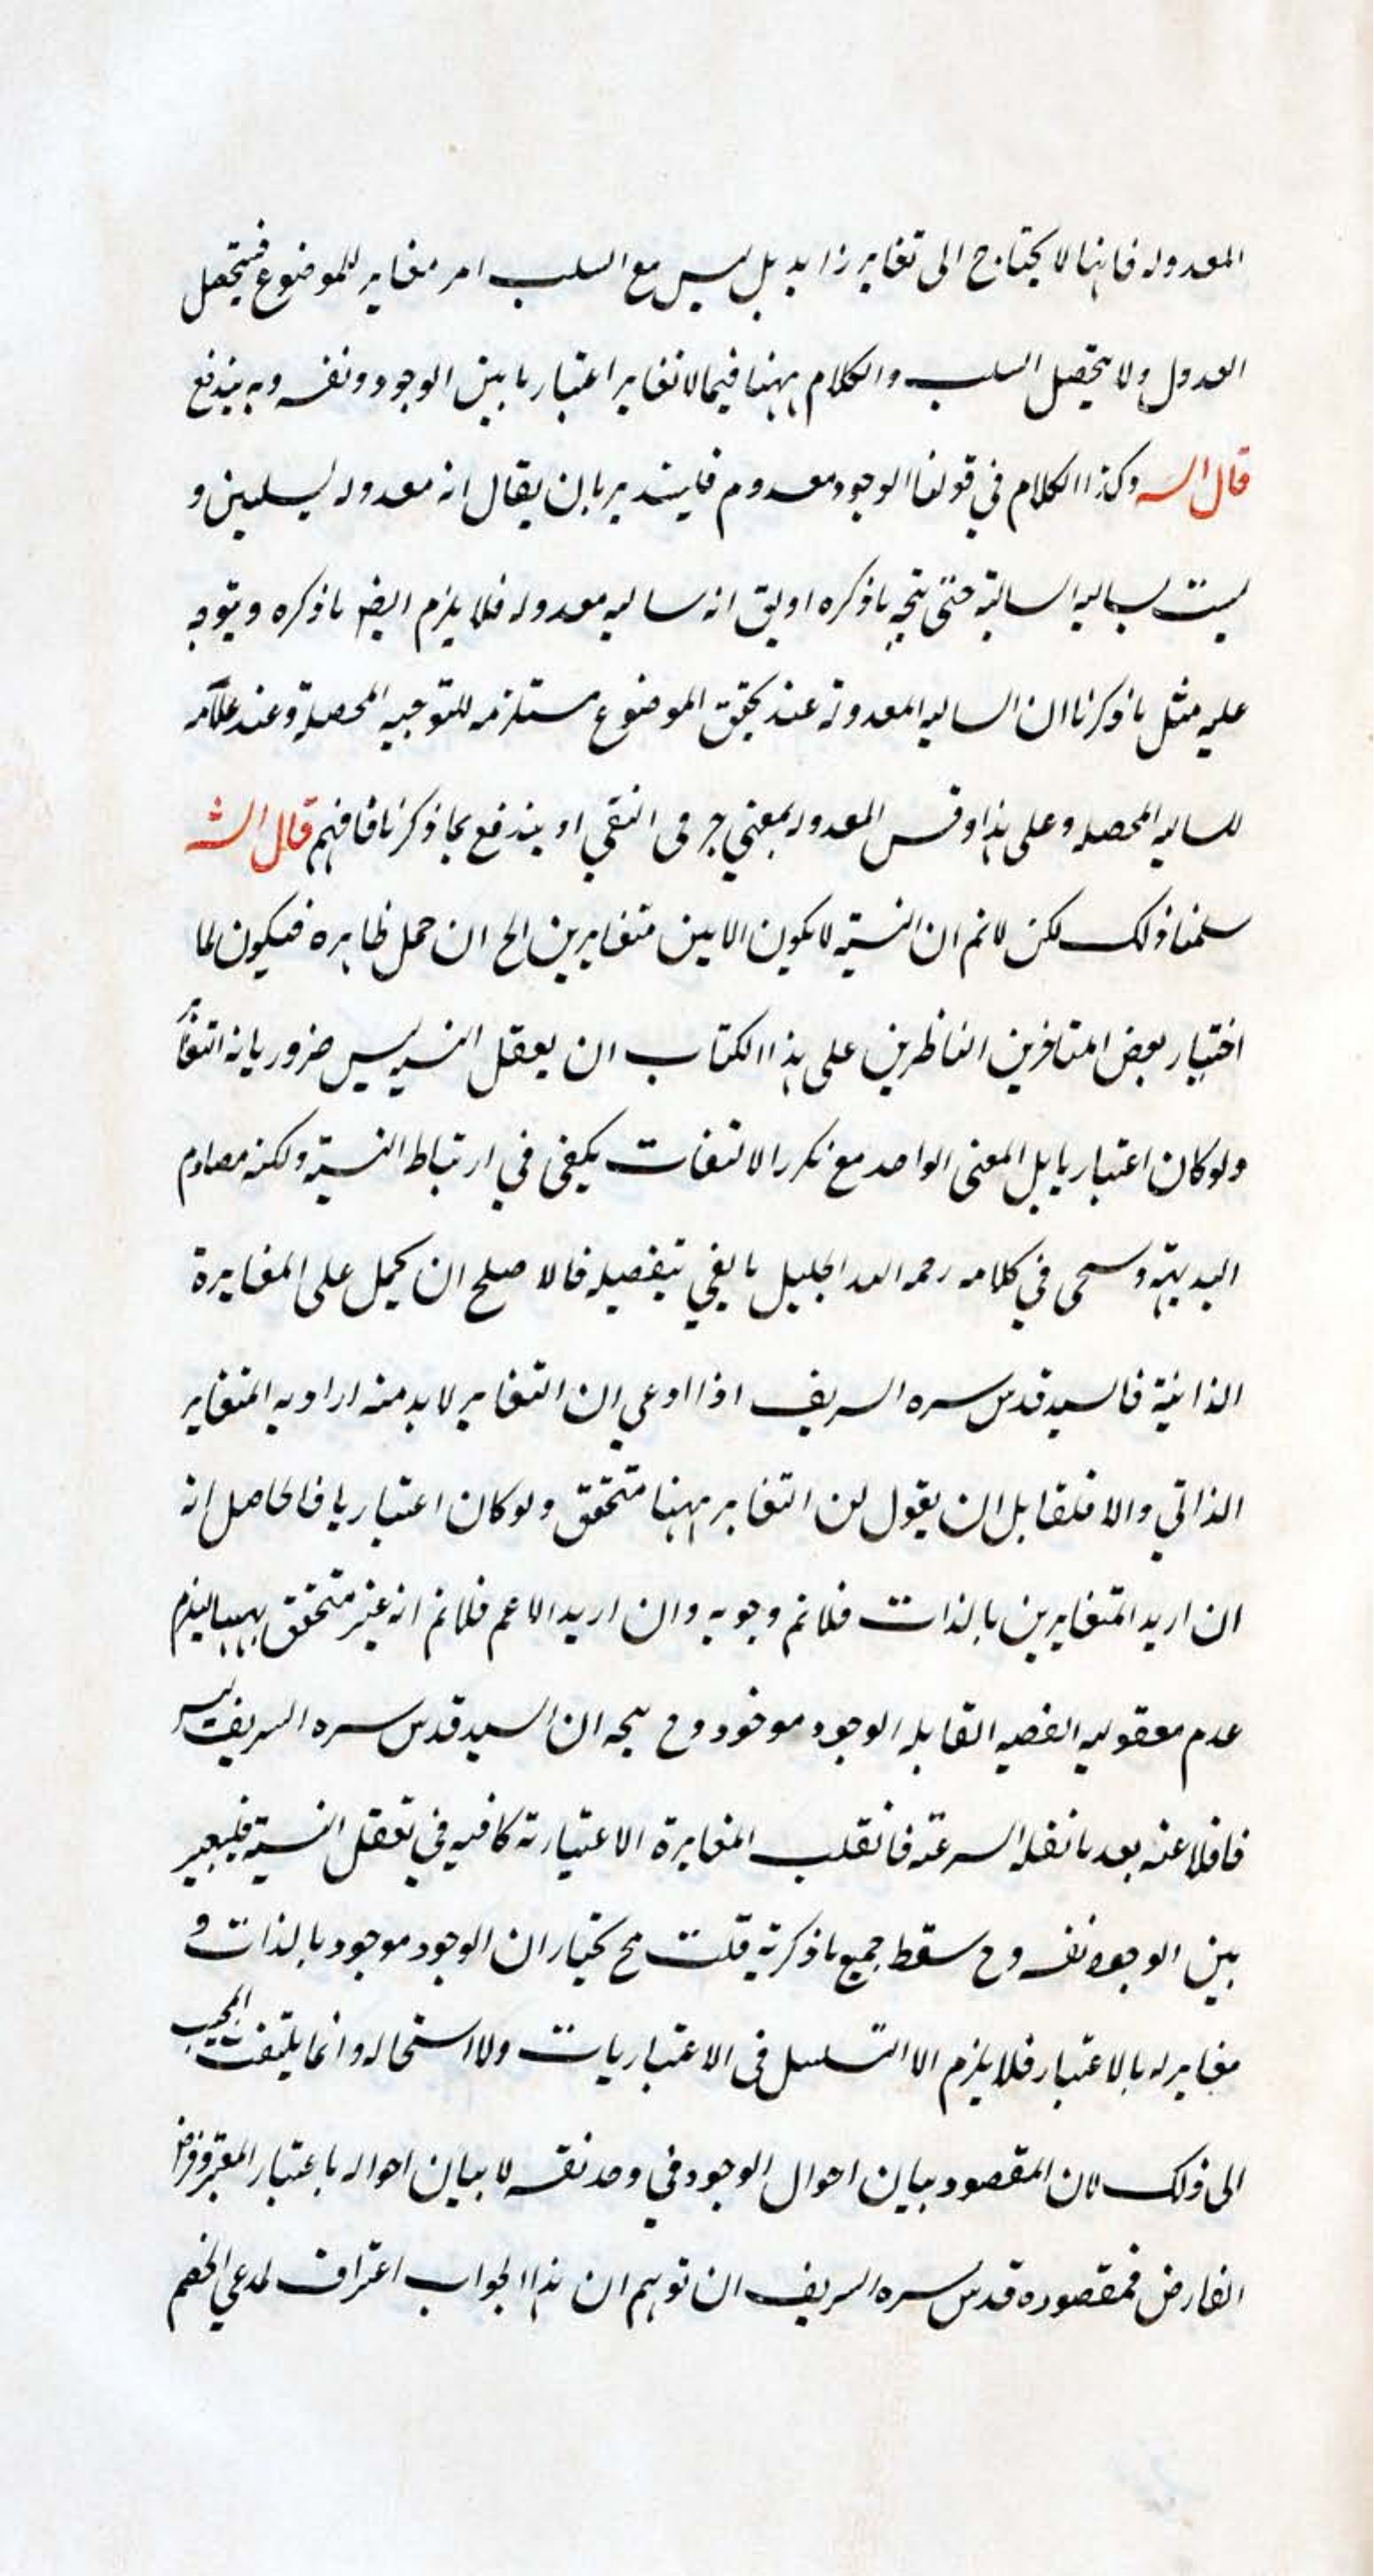 المعدوله فانها لا يحتاج الى تغاير زايد بل ليس مع السلب امر مغاير للموضوع فيتحصل
العدول ولا يتحصل السلب والكلام ههنا فيما لا تغاير اعتباريا بين الوجود ونفسه وبه يندفع
قال الش وكذا الكلام في قولنا الوجود معدوم بان يقال انه معدوله لسلبين و
ليست بسالبه السالبة حتى يتجه ما ذكره او يق انه سالبه معدوله فلا يلزم ايضا ما ذكره ويتوجه
عليه مثل ما ذكرنا ان السالبه المعدولة عند تحقق الموضوع مستلزمه للموجبه المحصلة وعند
للسالبه المحصله وعلى هذا المعدوله بمعنى حرفى النفي او يندفع بما ذكرنا فافهم قال الش
سلمنا ذلك لكن لانم ان النسبة لا يكون الا بين متغايرين الخ ان حمل ظاهره فيكون لما
اختيار بعض المتاخرين الناظرين على هذا الكتاب ان يعقل النسبه ليس ضروريا
ولو كان اعتباريا بل المعنى الواحد مع تكرر الالتفات يكفي في ارتباط النسبة ولكنه مصادم
البديهة وسيجى في كلامه رحمه الله الجليل ما يفي بتفصيله فالاصلح ان يحمل على المغايرة
الذاتية فالسيد قدس سره الشريف اذا ادعى ان التغاير لابد منه اراد به المتغاير
الذاتي والا فلقايل ان يقول لن التغاير ههنا متحقق ولو كان اعتباريا فالحاصل انه
ان اريد المتغايرين بالذات فلانم وجوبه وان اريد الاعم فلانم انه غير متحقق ههنا ليلزم
عدم معقوليه القضيه القايله الوجود موجود وح يتجه ان السيد قدس سره الشريف ليس
غافلا عنه بعد ما نقله فانقلب المغايرة الاعتيارية كافيه في تعقل النسبة فليعبر
بين الوجود ونفسه وح سقط جميع ما ذكرته قلت مح نختار ان الوجود موجود بالذات و
مغاير له بالاعتبار فلا يلزم الا التسلسل في الاعتباريات ولا استحاله وانما يلتفت المجيب
الى ذلك لان المقصود بيان احوال الوجود في وحد نفسه لا بيان احواله باعتبار المعتبر وفرض
الفارض فمقصوده قدس سره الشريف ان توهم ان هذا الجواب اعتراف لمدعي الخصم